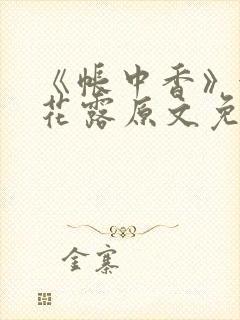 《帐中香》
花露原文免
金寨